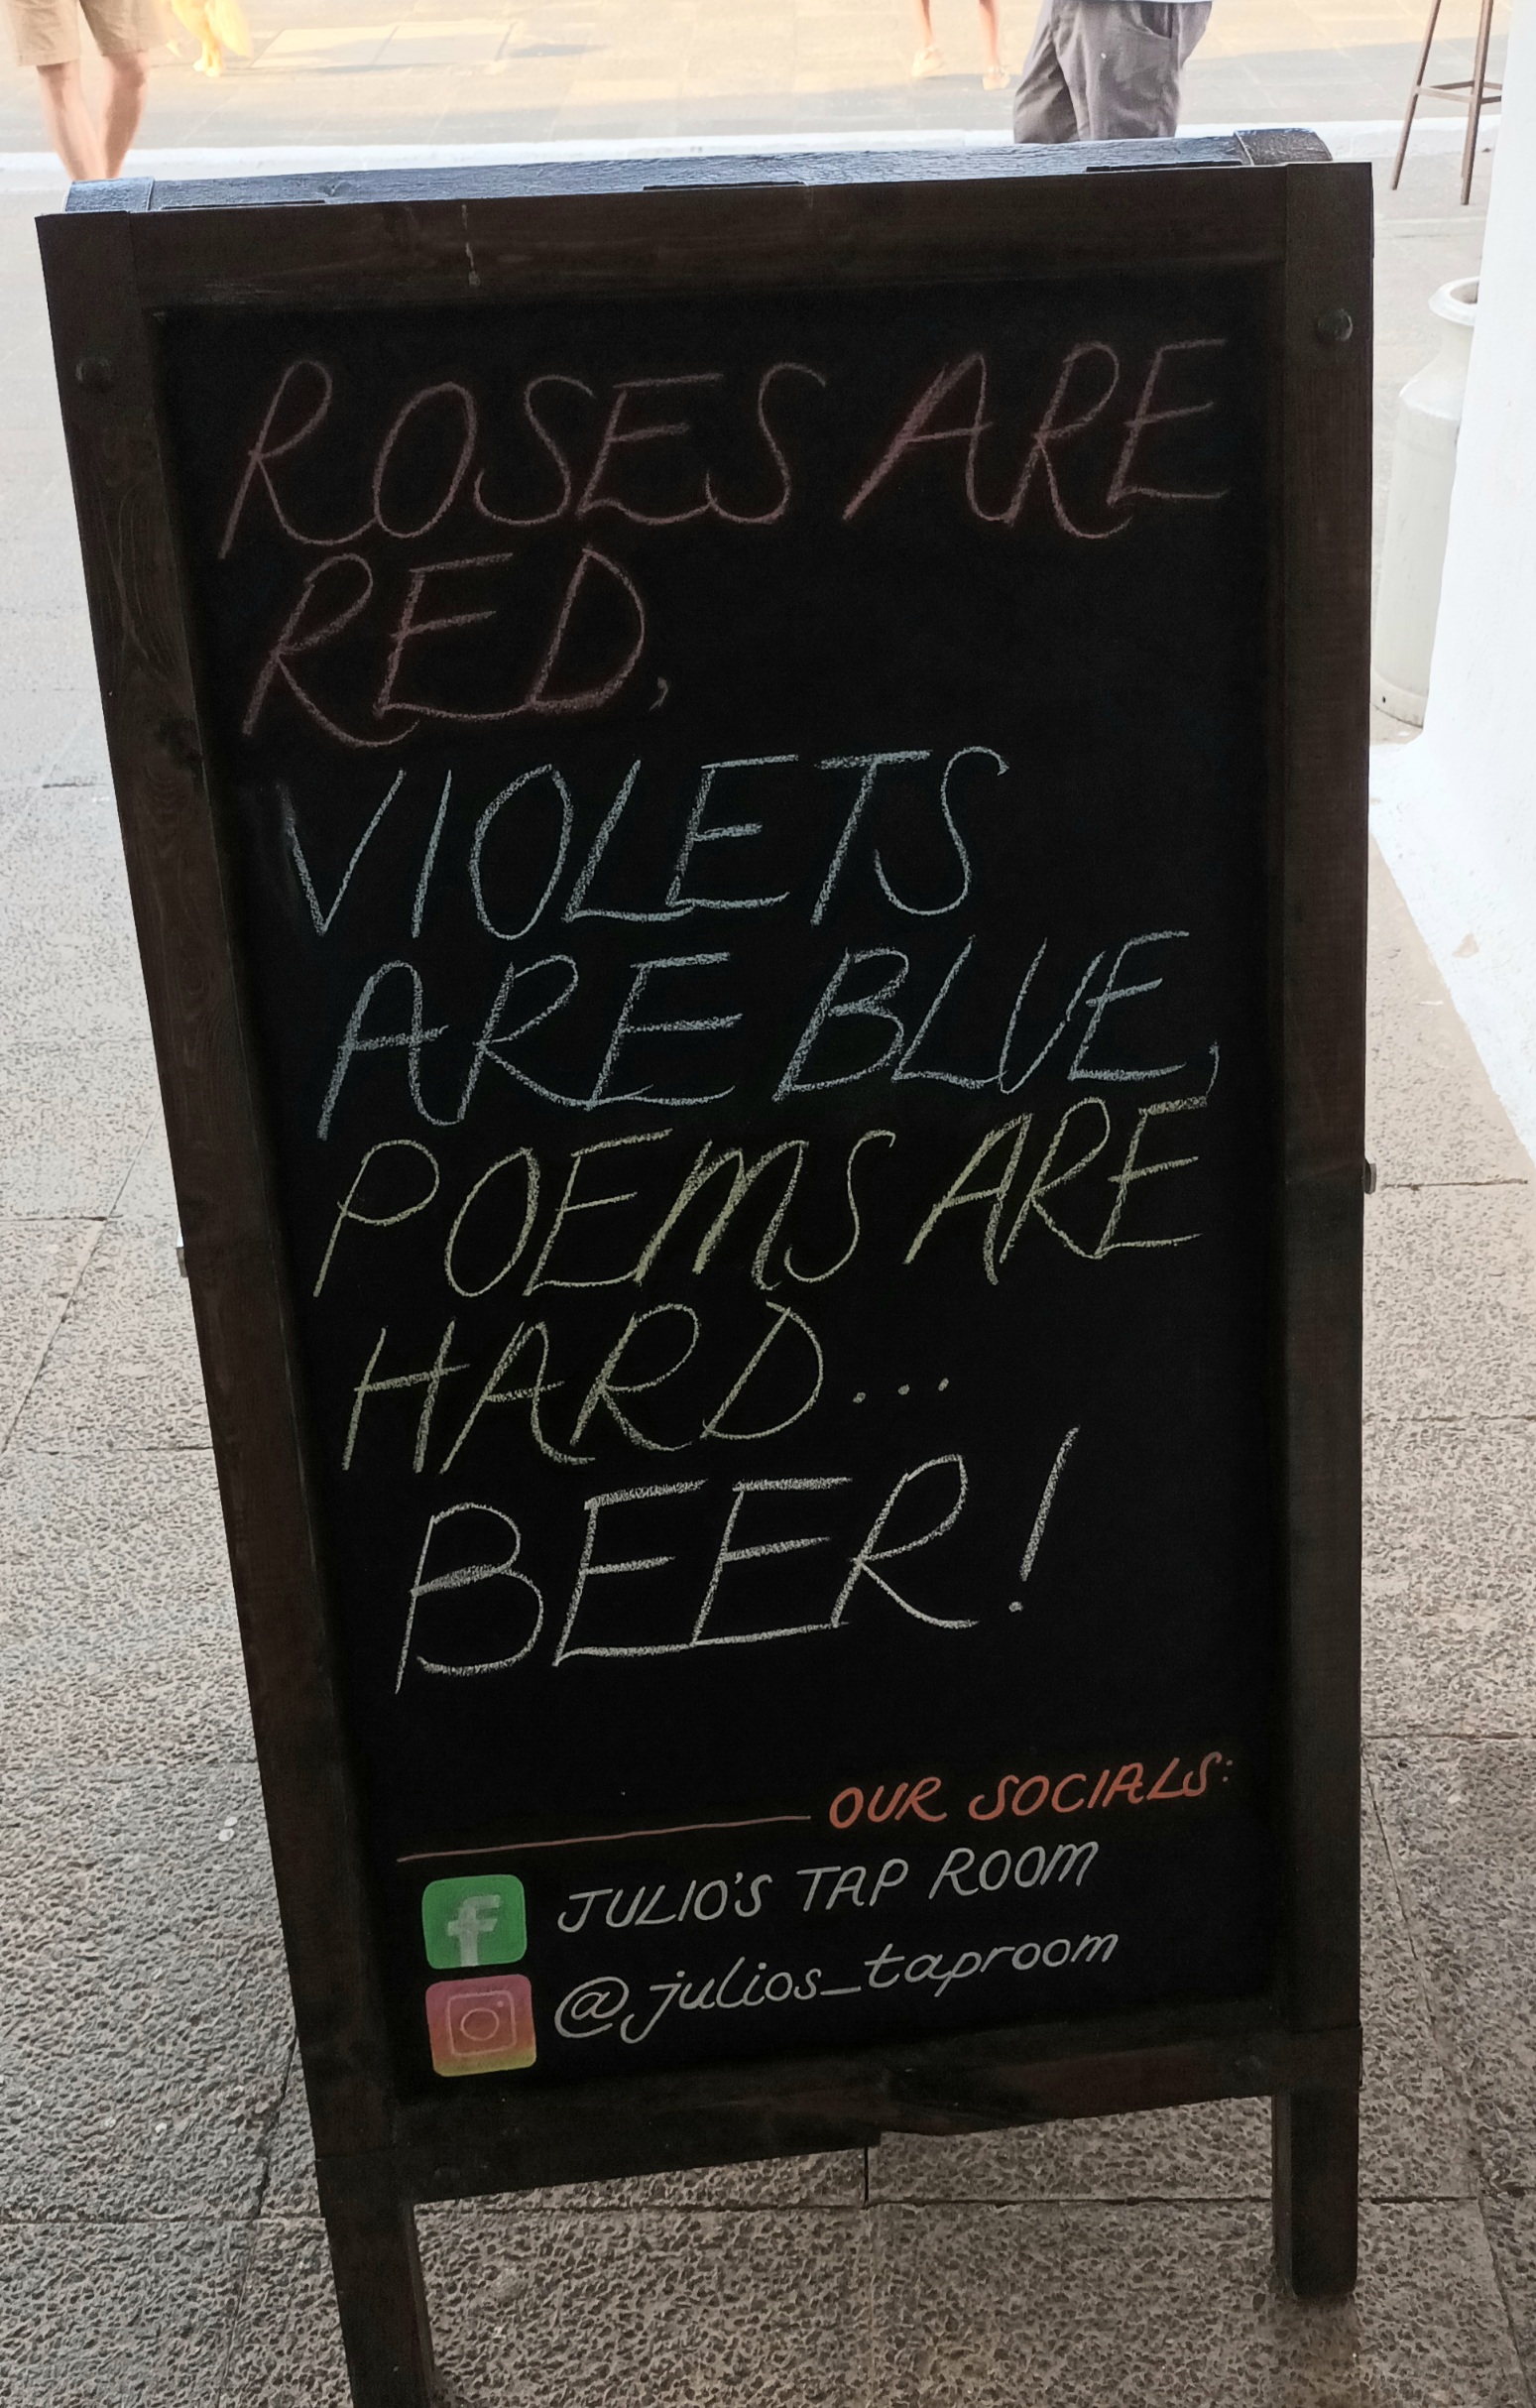 ROSES ARE
RED,
VIOLETS
ARE BLUE,
POEMS ARE
HARD...
BEER!
OUR SOCIALS:
f JULIO'S TAP ROOM
@julios_taproom